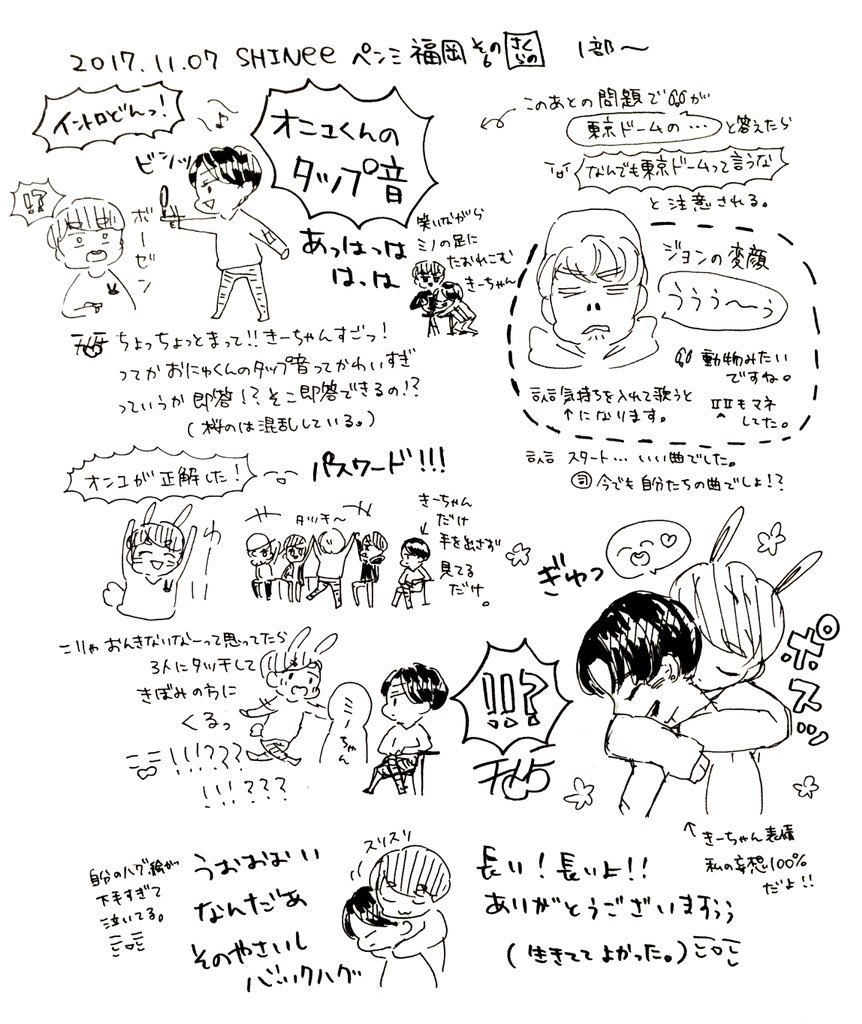 2017.11.07 SHINee ペンミ福岡 その6 さくらの 1部〜
イントロどんっ!
ビシッ
オニュくんの
タップ音
!?
ボーゼン
あっはっは
はっは
笑いながら
ミノの足に
たおれこむ
きーちゃん
ちょっちょっとまって!!きーちゃんすごっ!
ってかおにゅくんのタップ音ってかわいすぎ
っていうか即答!?そこ即答できるの!?
(桜のは混乱している。)
このあとの問題で が
東京ドームの… と答えたら
なんでも東京ドームって言うな
と注意される。
ジョンの変顔
ううう〜ぅ
動物みたい
ですね。
気持ちを入れて歌うと
↑になります。
もマネ
してた。
スタート…いい曲でした。
司 今でも自分たちの曲でしょ!?
オンユが正解した!
パスワード!!!
わーい
タッチ〜
きーちゃん
だけ
手を出さず
見てる
だけ。
こりゃおんきないなーって思ってたら
3人にタッチして
きぼみの方に
くるっ
!!!???
!!!???
ミノちゃん
!!!?
ぎゅっ
ポスッ
↑きーちゃん表情
私の妄想100%
だよ!!
自分のハグ絵が
下手すぎて
泣いてる。
うおおおい
なんだあ
そのやさいし
バックハグ
スリスリ
長い!長いよ!!
ありがとうございますぅぅ
(生きててよかった。)